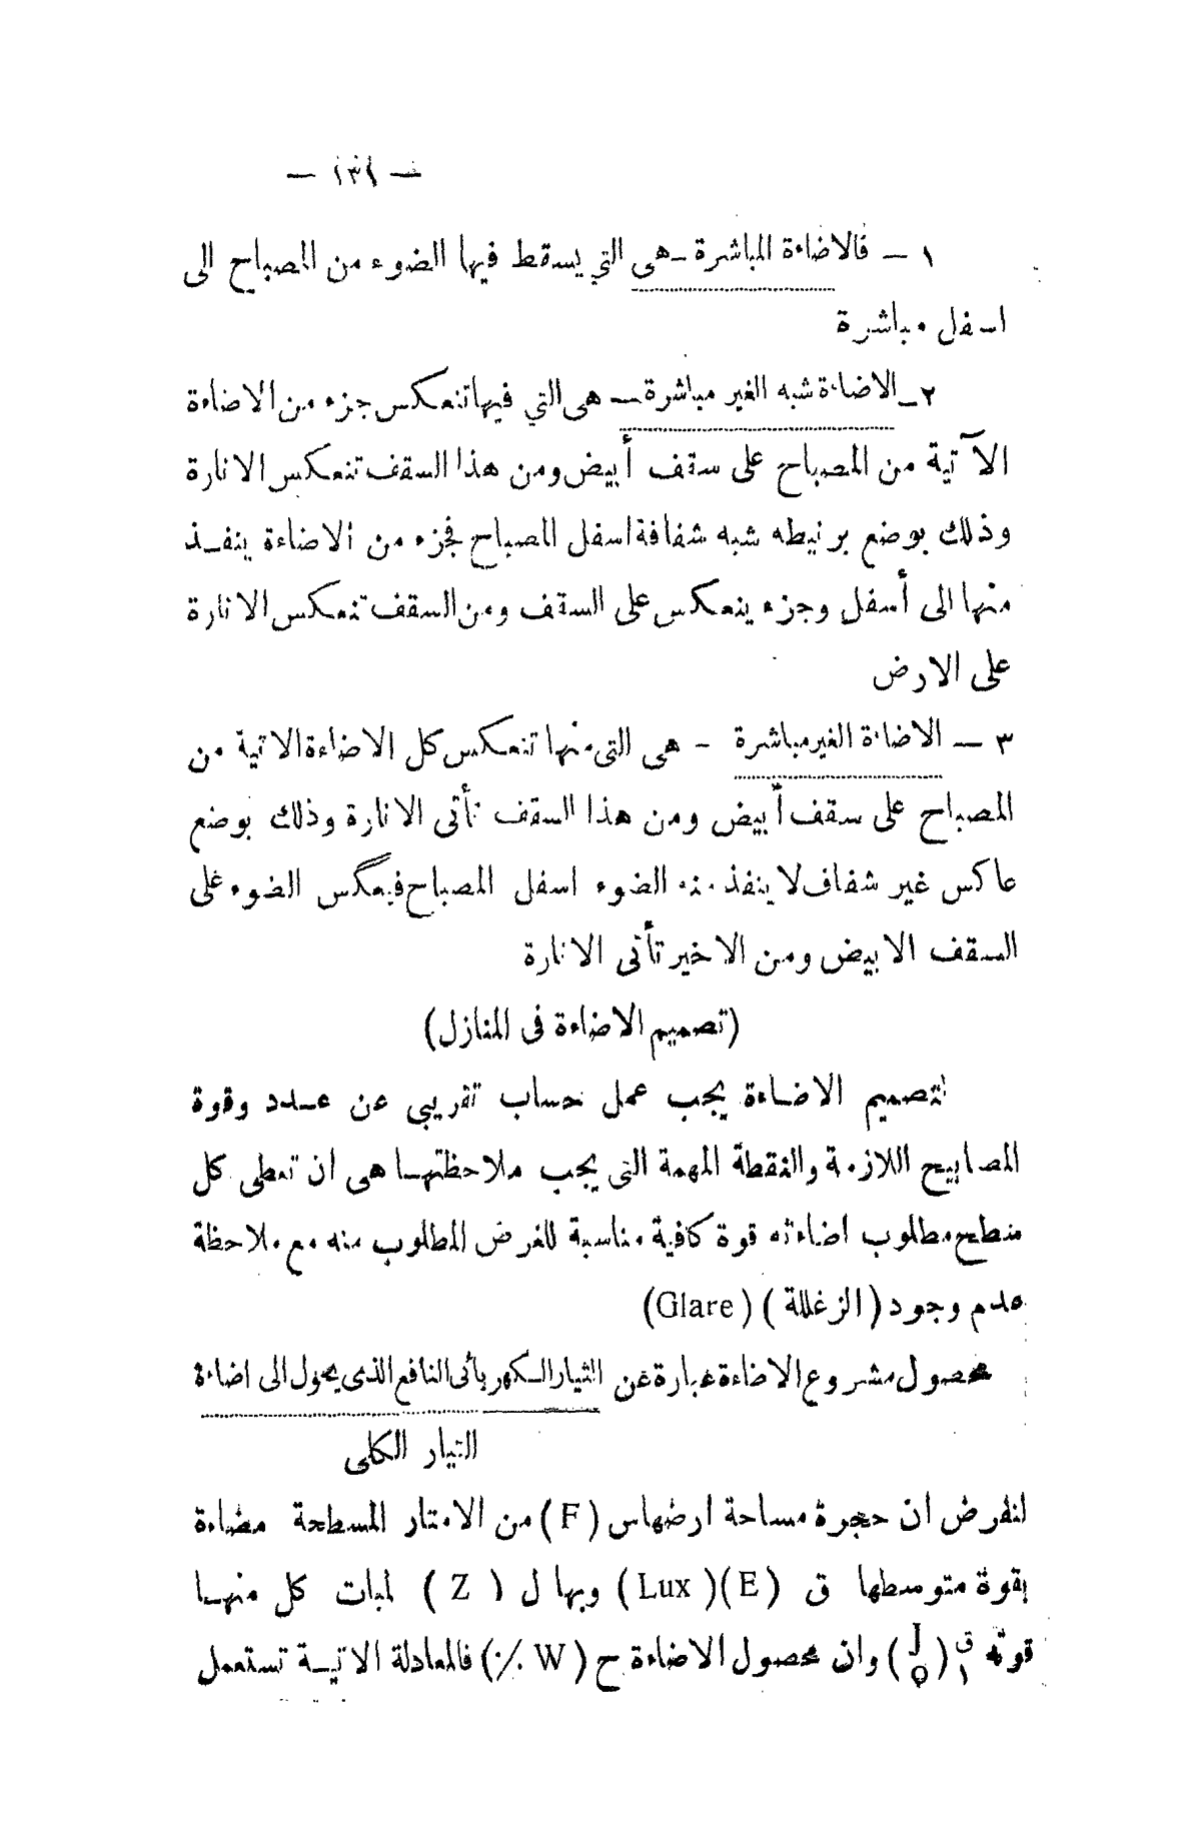 — ١٣١ —
١ — فالاضاءة المباشرة — هى التي يسقط فيها الضوء من المصباح الى
اسفل مباشرة
٢ — الاضاءة شبه الغير مباشرة — هى التي فيها تنعكس جزء من الاضاءة
الآتية من المصباح على سقف أبيض ومن هذا السقف تنعكس الانارة
وذلك بوضع برنيطه شبه شفافة اسفل المصباح فجزء من الاضاءة ينفــذ
منها الى أسفل وجزء ينعكس على السقف ومن السقف تنعكس الانارة
على الارض
٣ — الاضاءة الغير مباشرة - هى التى منها تنعكس كل الاضاءة الاتية من
المصباح على سقف أبيض ومن هذا السقف تأتى الانارة وذلك بوضع
عاكس غير شفاف لا ينفذ منه الضوء اسفل المصباح فيعكس الضوء على
السقف الابيض ومن الاخير تأتى الانارة
(تصميم الاضاءة فى المنازل)
لتصميم الاضاءة يجب عمل حساب تقريبي عن عدد وقوة
المصابيح اللازمة والنقطة المهمة التى يجب ملاحظتهــا هى ان تعطى كل
سطح مطلوب اضاءته قوة كافية مناسبة للغرض المطلوب منه مع ملاحظة
عدم وجود (الزغللة) (Glare)
محصول مشروع الاضاءة عبارة عن التيار الكهربائى النافع الذى يحول الى اضاءة
التيار الكلى
لنفرض ان حجرة مساحة ارضها س (F) من الامتار المسطحة مضاءة
بقوة متوسطها ق (E) (Lux) وبها ل (Z) لمبات كل منهــا
قوته ق١ (J٥) وان محصول الاضاءة ح (W ٪) فالمعادلة الاتيــة تستعمل